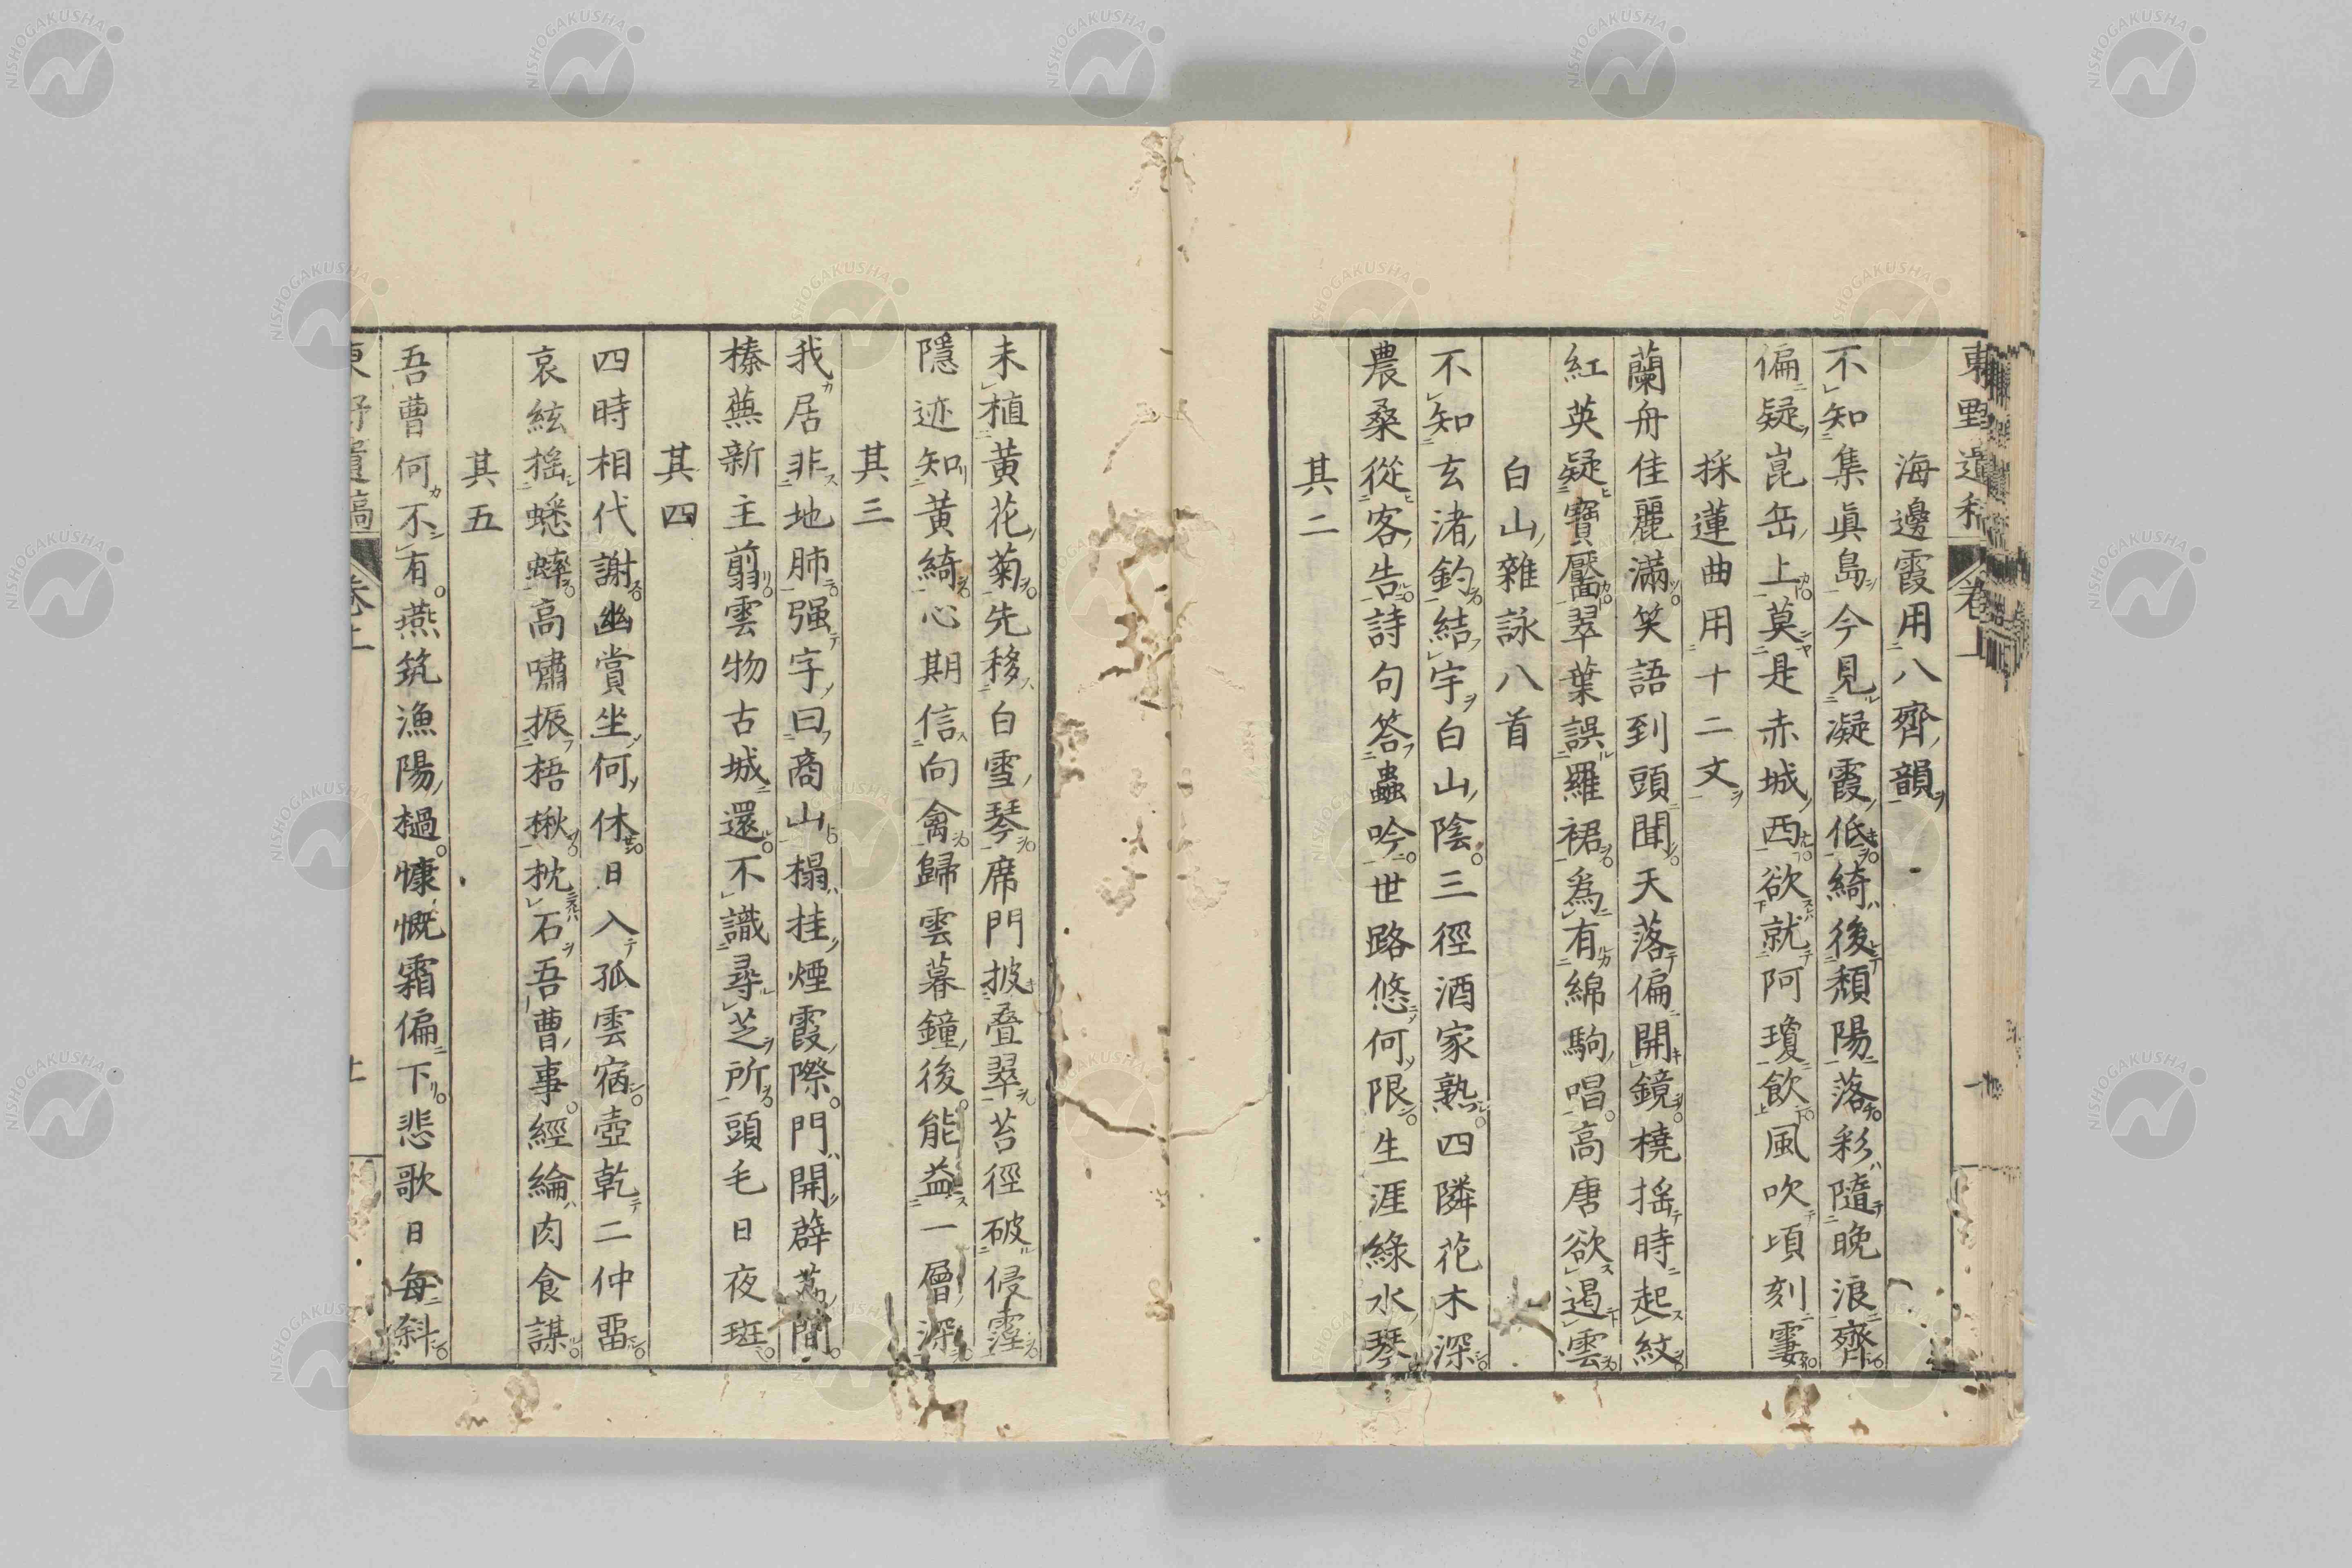 東野遺稿 卷上
海邊霞用八齊韻
不知集眞島今見凝霞低綺後頽陽落彩隨晚浪齊
偏疑崑岳上莫是赤城西欲就阿瓊飲風吹頃刻霎
採蓮曲用十二文
蘭舟佳麗滿笑語到頭聞天落偏開鏡橈搖時起紋
紅英疑寶靨翠葉誤羅裙爲有綿駒唱高唐欲遏雲
白山雜詠八首
不知玄渚釣結宇白山陰三徑酒家熟四隣花木深
農桑從客告詩句答蟲吟世路悠何限生涯綠水琴
其二
未植黃花菊先移白雪琴席門披疊翠苔徑破侵霪
隱迹知黃綺心期信向禽歸雲暮鐘後能益一層深
其三
我居非地肺强字曰商山榻挂煙霞際門開薜茘間
榛蕪新主翦雲物古城還不識尋芝所頭毛日夜斑
其四
四時相代謝幽賞坐何休日入孤雲宿壺乾二仲畱
哀絃搖蟋蟀高嘯振梧楸枕石吾曹事經綸肉食謀
其五
吾曹何不有燕筑漁陽檛慷慨霜偏下悲歌日每斜
東野遺稿 卷上
NISHOGAKUSHA